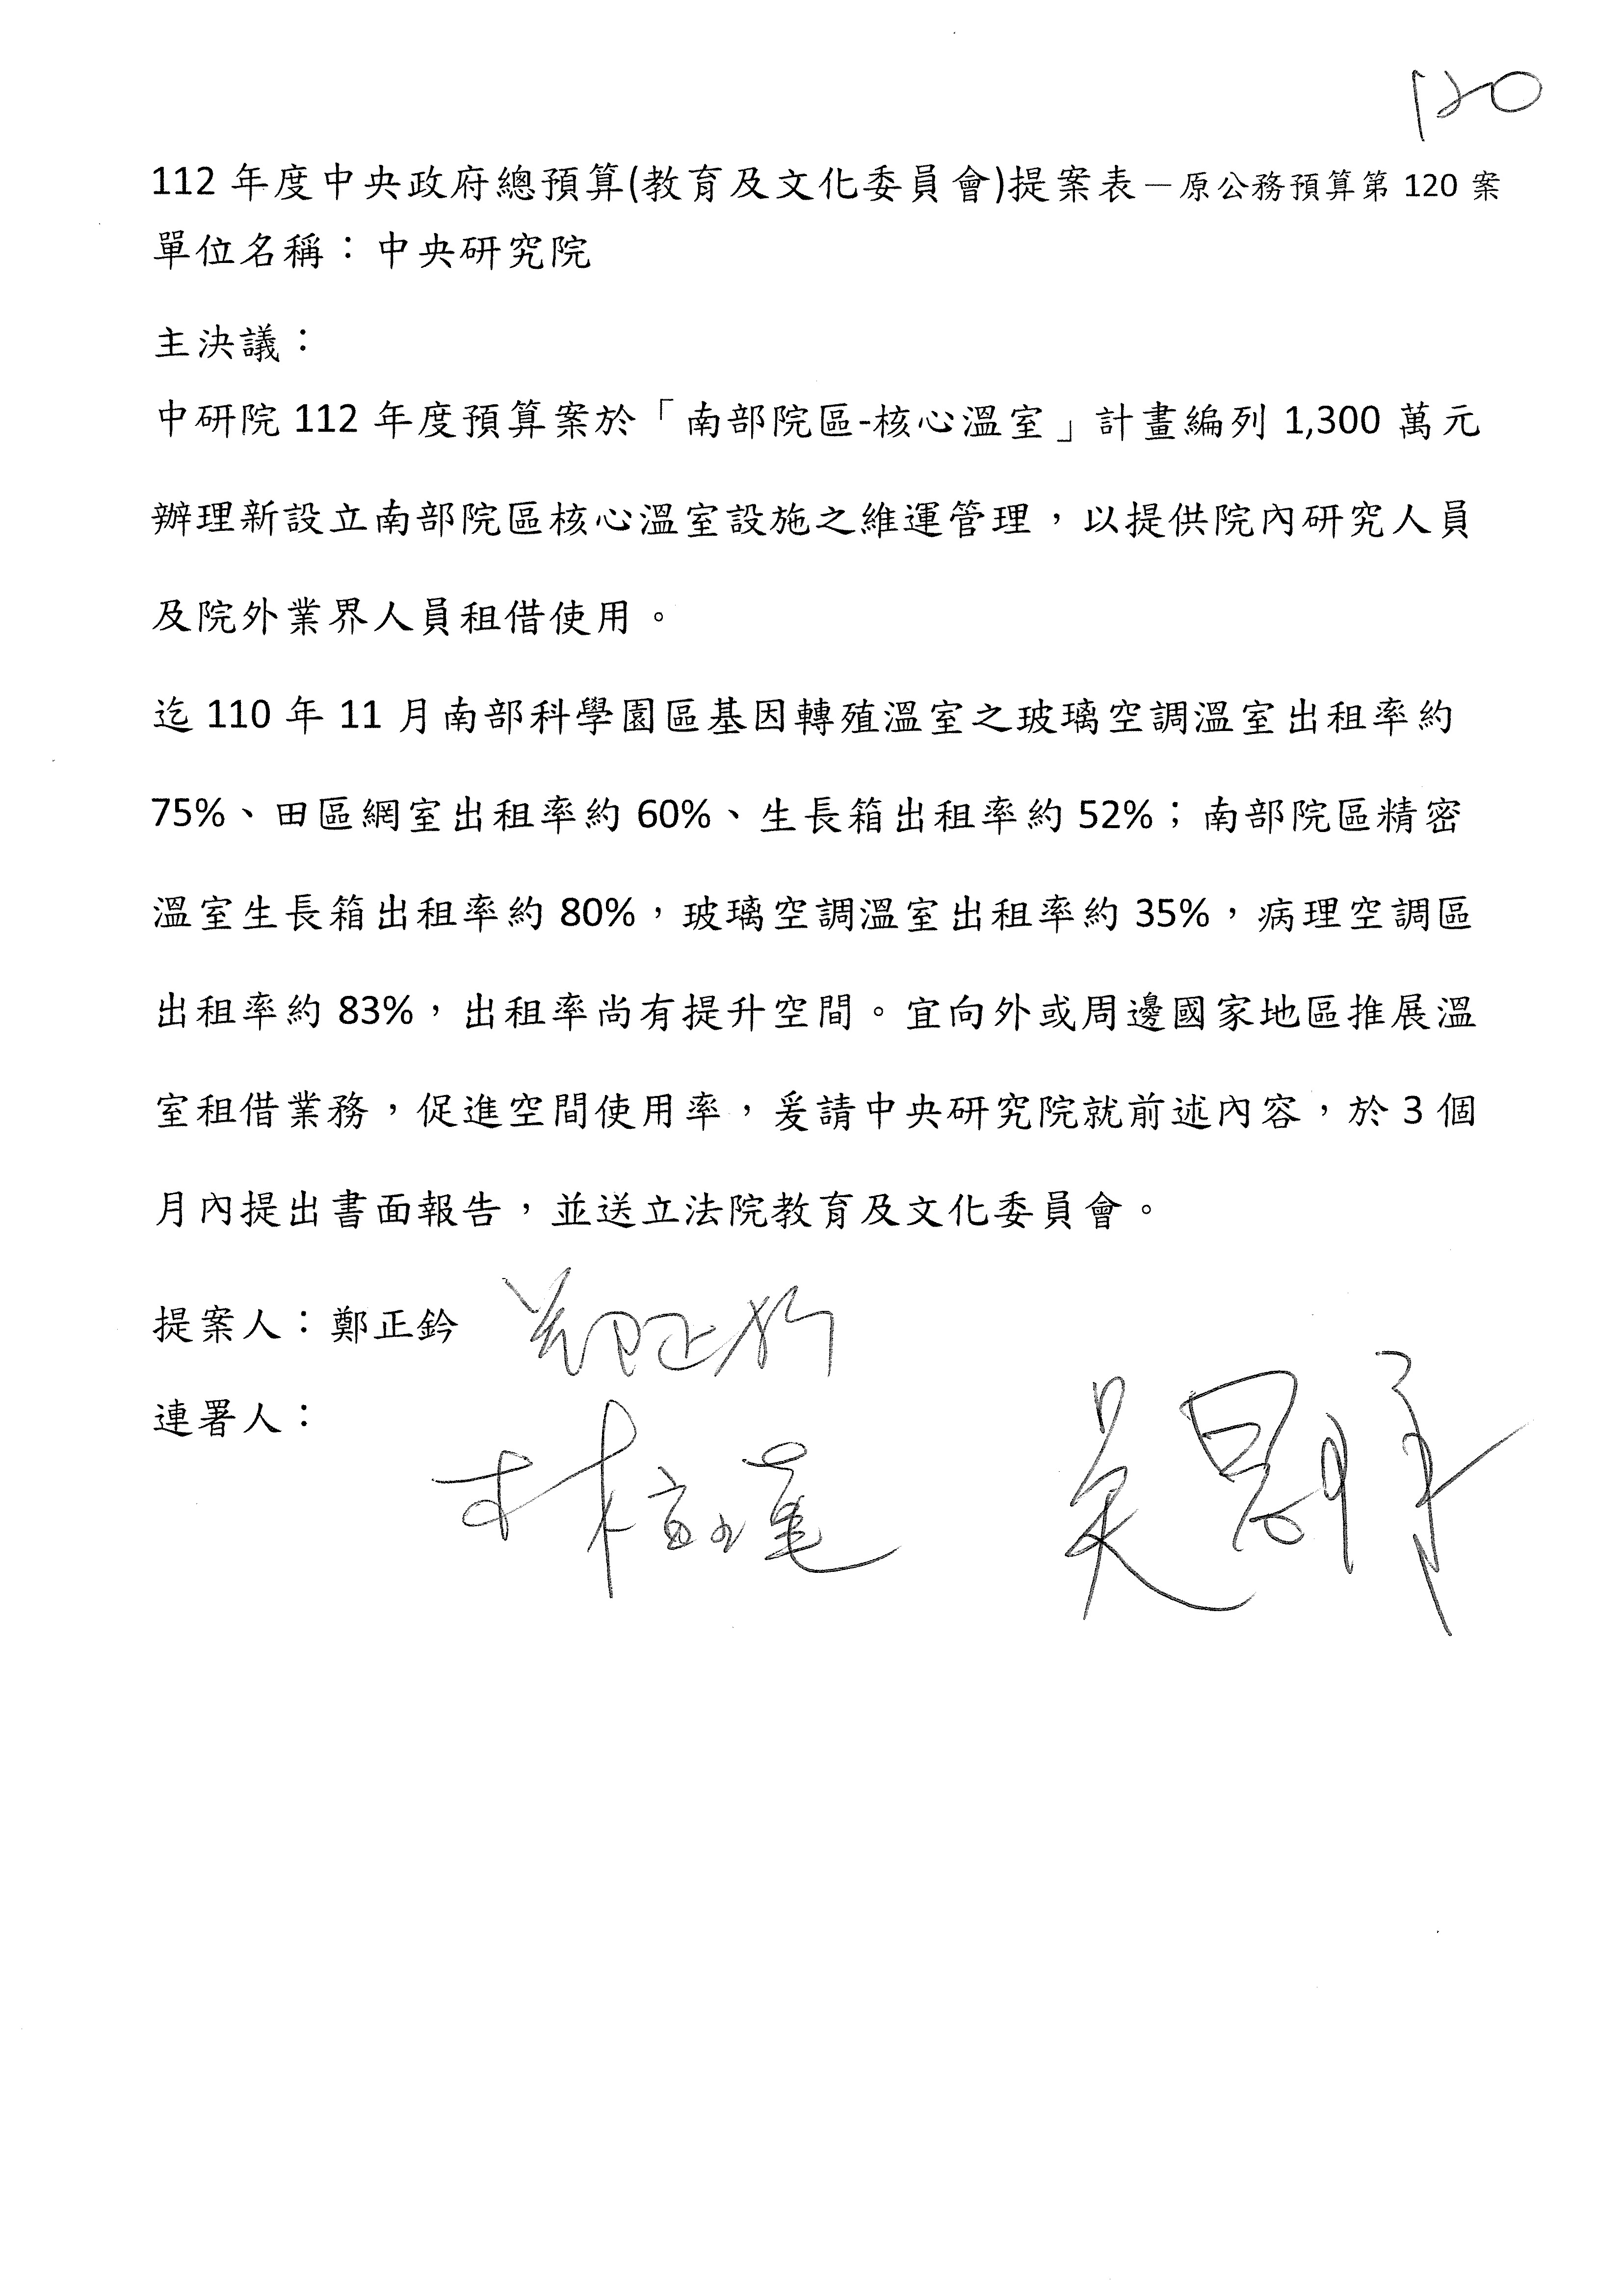 120
112 年度中央政府總預算(教育及文化委員會)提案表－原公務預算第 120 案
單位名稱：中央研究院
主決議：
中研院 112 年度預算案於「南部院區-核心溫室」計畫編列 1,300 萬元
辦理新設立南部院區核心溫室設施之維運管理，以提供院內研究人員
及院外業界人員租借使用。
迄 110 年 11 月南部科學園區基因轉殖溫室之玻璃空調溫室出租率約
75%、田區網室出租率約 60%、生長箱出租率約 52%；南部院區精密
溫室生長箱出租率約 80%，玻璃空調溫室出租率約 35%，病理空調區
出租率約 83%，出租率尚有提升空間。宜向外或周邊國家地區推展溫
室租借業務，促進空間使用率，爰請中央研究院就前述內容，於 3 個
月內提出書面報告，並送立法院教育及文化委員會。
提案人：鄭正鈐 鄭正鈐
連署人：